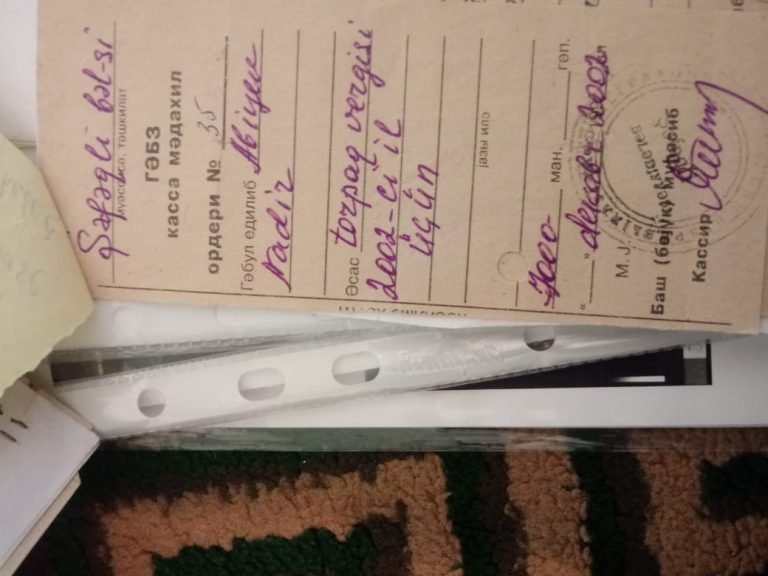 Şəfəqli bəl-si
мүәссисә, тәшкилат
ГӘБЗ
касса мәдахил
ордери № 35
Гәбул едилиб Abiyev
Nadir
Әсас torpaq vergisi
2002-ci il
üçün
јазы илә
ман. гәп.
" " 2002
М.Ј.
Баш (бөјүк) мүһасиб
Кассир